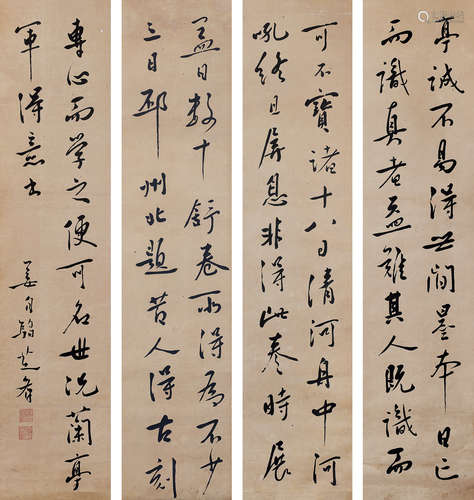 亭誠不易得世間墨本日亡
而識真者益難其人既識而
可不寶諸十八日清河舟中河
吼終日屏息非得此卷時展
蓋日數十舒卷所得為不少
三日邳州北題昔人得古刻
專心而學之便可名世况蘭亭
軍得意書
姜自